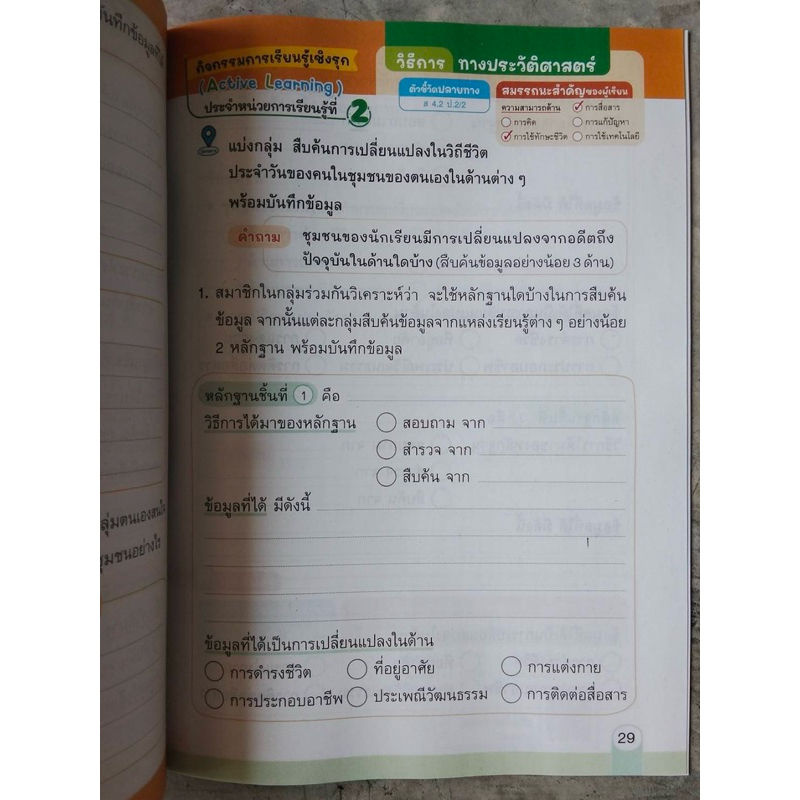 บันทึกข้อมูล
ลุ่มตนเองสนใจ
ชุมชนอย่างไร
กิจกรรมการเรียนรู้เชิงรุก
(Active Learning)
ประจำหน่วยการเรียนรู้ที่ 2
วิธีการ ทางประวัติศาสตร์
ตัวชี้วัดปลายทาง
ส 4.2 ป.2/2
สมรรถนะสำคัญของผู้เรียน
ความสามารถด้าน การสื่อสาร
การคิด การแก้ปัญหา
การใช้ทักษะชีวิต การใช้เทคโนโลยี
แบ่งกลุ่ม สืบค้นการเปลี่ยนแปลงในวิถีชีวิต
ประจำวันของคนในชุมชนของตนเองในด้านต่าง ๆ
พร้อมบันทึกข้อมูล
คำถาม ชุมชนของนักเรียนมีการเปลี่ยนแปลงจากอดีตถึง
ปัจจุบันในด้านใดบ้าง (สืบค้นข้อมูลอย่างน้อย 3 ด้าน)
1. สมาชิกในกลุ่มร่วมกันวิเคราะห์ว่า จะใช้หลักฐานใดบ้างในการสืบค้น
ข้อมูล จากนั้นแต่ละกลุ่มสืบค้นข้อมูลจากแหล่งเรียนรู้ต่าง ๆ อย่างน้อย
2 หลักฐาน พร้อมบันทึกข้อมูล
หลักฐานชิ้นที่ 1 คือ
วิธีการได้มาของหลักฐาน สอบถาม จาก
สำรวจ จาก
สืบค้น จาก
ข้อมูลที่ได้ มีดังนี้
ข้อมูลที่ได้เป็นการเปลี่ยนแปลงในด้าน
การดำรงชีวิต ที่อยู่อาศัย การแต่งกาย
การประกอบอาชีพ ประเพณีวัฒนธรรม การติดต่อสื่อสาร
29